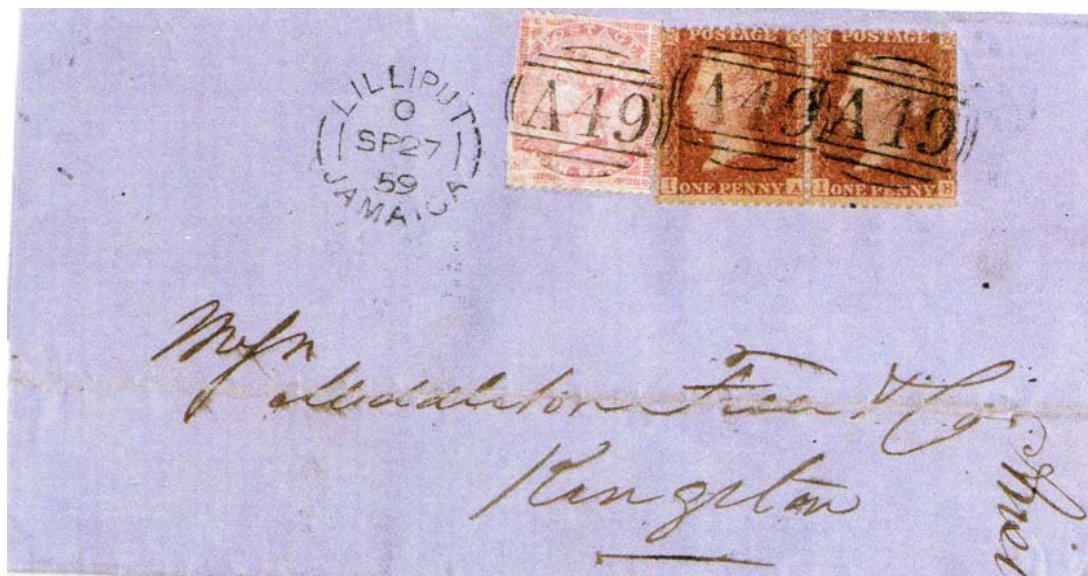 LILLIPUT
O
SP27
59
JAMAICA
POSTAGE
A49
POSTAGE
A49
I ONE PENNY A
POSTAGE
A49
I ONE PENNY B
Messrs
Middleton & Co
Kingston